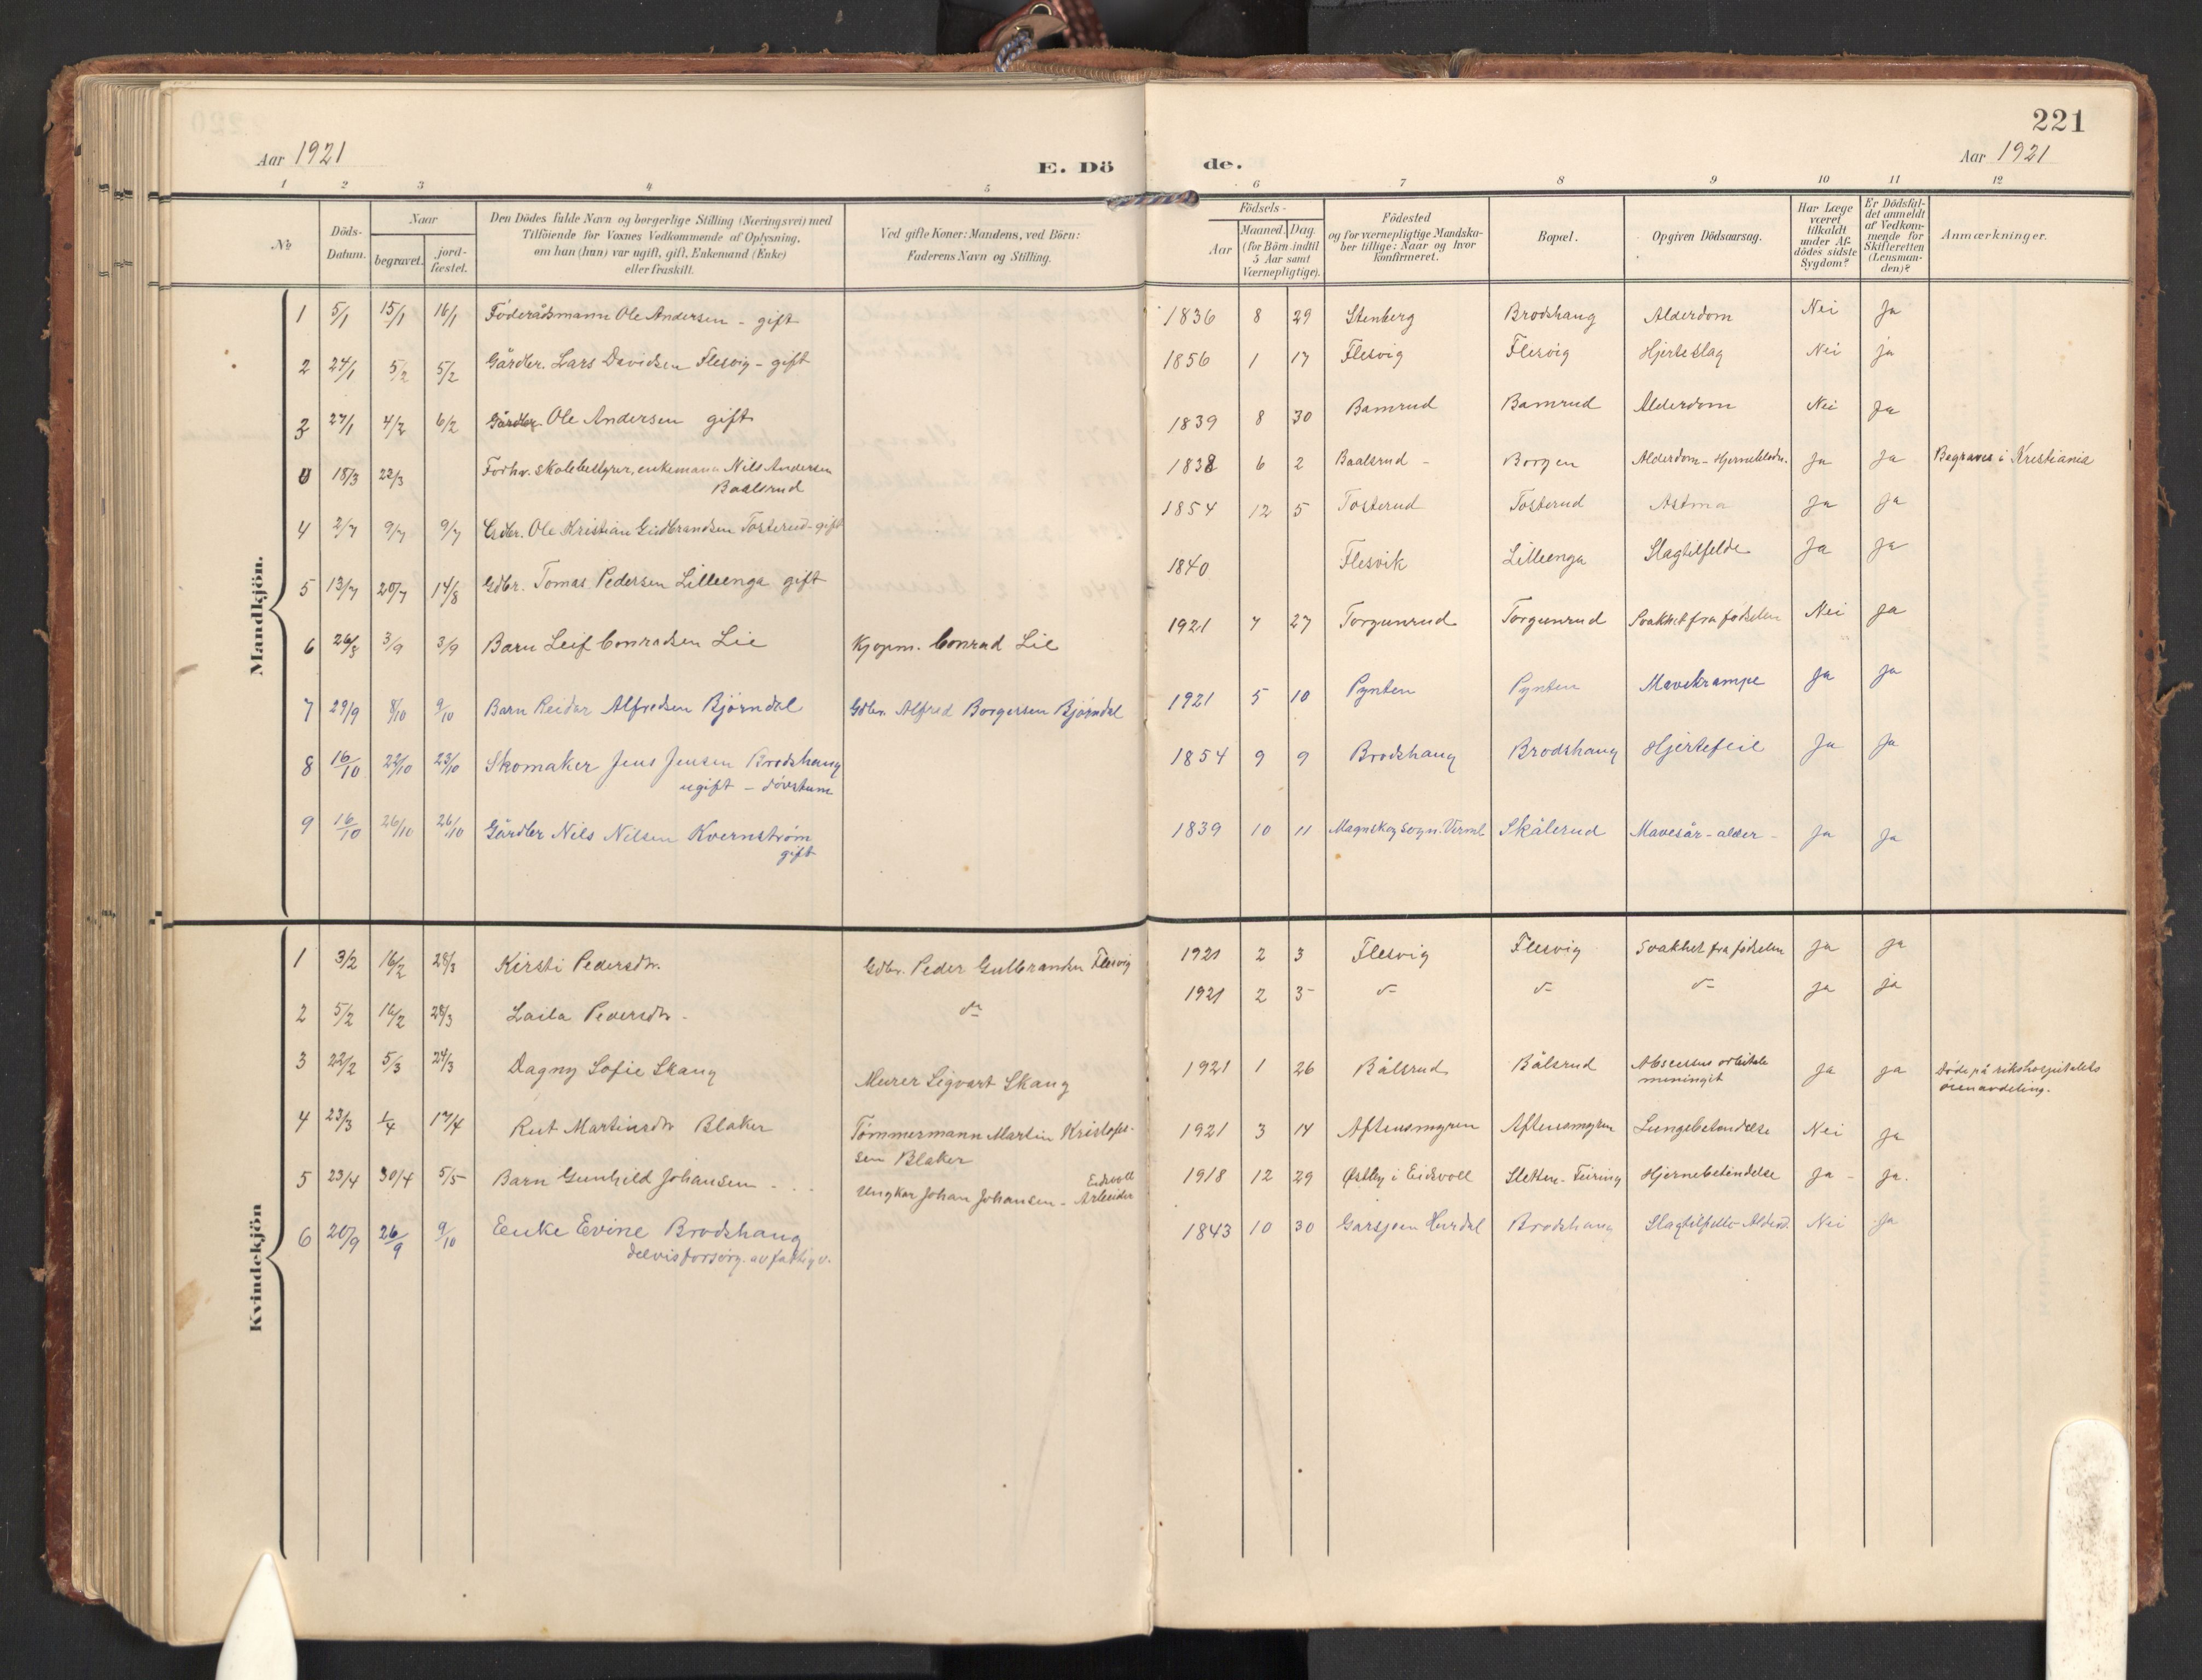 221
Aar 1921
E. Dö
de.
Aar 1921
1 2 3 4 5 6 7 8 9 10 11 12
No
Döds-Datum.
Naar
begravet.
jord-fæstet.
Den Dödes fulde Navn og borgerlige Stilling (Næringsvei) med
Tilföiende for Voxnes Vedkommende af Oplysning,
om han (hun) var ugift, gift, Enkemand (Enke)
eller fraskilt.
Ved gifte Koner: Mandens, ved Börn:
Faderens Navn og Stilling.
Födsels-
Aar
Maaned. Dag
(for Börn indtil
5 Aar samt
Værnepligtige).
Födested
og for værnepligtige Mandska-
ber tillige: Naar og hvor
konfirmeret.
Bopæl.
Opgiven Dödsaarsag.
Har Læge
været
tilkaldt
under Af-
dödes sidste
Sygdom?
Er Dödsfal-
det anmeldt
af Vedkom-
mende for
Skifteretten
(Lensman-
den)?
Anmærkninger.
Mandkjön.
1 5/1 15/1 16/1 Föderådsmann Ole Andersen - gift 1836 8 29 Stenberg Brodshaug Alderdom Nei Ja
2 24/1 5/2 5/2 Gårdbr. Lars Davidsen Flesvig - gift 1856 1 17 Flesvig Flesvig Hjerteslag Nei ja
3 27/1 4/2 6/2 Gårdbr. Ole Andersen gift 1839 8 30 Bamrud Bamrud Alderdom Nei Ja
0 18/3 22/3 Forhv. skolebestyrer, enkemann Nils Andersen
Baalsrud 1838 6 2 Baalsrud - Borgen Alderdom - Hjerneblødn. Ja Ja Begraves i Kristiania
4 2/7 9/7 9/7 Gdbr. Ole Kristian Gudbrandsen Tosterud - gift 1854 12 5 Tosterud Tosterud Astma Ja Ja
5 13/7 20/7 14/8 Gdbr. Tomas Pedersen Lilleenga gift 1840 Flesvik Lilleenga Slagtilfelde Ja Ja
6 26/8 3/9 3/9 Barn Leif Conradsen Lie Kjøpm. Conrad Lie 1921 7 27 Torgunrud Torgunrud Svakhet fra fødselen Nei Ja
7 29/9 8/10 9/10 Barn Reidar Alfredsen Bjørndal Gdbr. Alfred Borgersen Bjørndal 1921 5 10 Pynten Pynten Mavekrampe Ja Ja
8 16/10 22/10 23/10 Skomaker Jens Jensen Brodshaug
ugift - døvstum 1854 9 9 Brodshaug Brodshaug Hjertefeil Ja Ja
9 16/10 26/10 26/10 Gårdbr Nils Nilsen Kvernstrøm
gift 1839 10 11 Magnskog sogn. Verml. Skålerud Mavesår - alder - Ja Ja
Kvindekjön
1 3/2 16/2 28/3 Kirsti Pedersdtr. Gdbr. Peder Gulbrandsen Flesvig 1921 2 3 Flesvig Flesvig Svakhet fra fødselen Ja Ja
2 5/2 16/2 28/3 Laila Pedersdtr - do 1921 2 3 do do do Ja ja
3 22/2 5/3 24/3 Dagny Sofie Skaug Murer Sigvart Skaug 1921 1 26 Bålsrud Bålsrud Abscessus orbitale
meningit Ja Ja Døde på rikshospitalets
øienavdeling.
4 23/3 1/4 17/4 Rut Martinsdtr Blaker Tømmermann Martin Kristofer-
sen Blaker 1921 3 14 Aftensmyren Aftensmyren Lungebetendelse Nei Ja
5 23/4 30/4 5/5 Barn Gunhild Johansen - . . Ungkar Johan Johansen - Eidsvoll
Arbeider 1918 12 29 Østby i Eidsvoll Sletten - Feiring Hjernebetendelse Ja - Ja.
6 20/9 26/9 9/10 Eenke Evine Brodshaug
delvis forsørg. av fattigv. 1843 10 30 Garsjøen Hurdal Brodshaug Slagtilfelle Alderd. Nei Ja